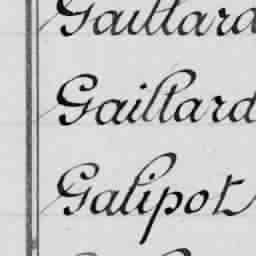 Gaillard
Gaillard
Galipot